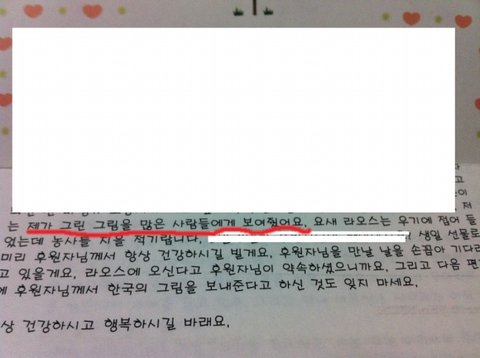 고
들이
저
는 제가 그린 그림을 많은 사람들에게 보여줬어요. 요새 라오스는 우기에 접어 들
었는데 농사를 지을 적기랍니다. 생일 선물로
미리 후원자님께서 항상 건강하시길 빌게요. 후원자님을 만날 날을 손꼽아 기다리
고 있을게요. 라오스에 오신다고 후원자님이 약속하셨으니까요. 그리고 다음 편
에 후원자님께서 한국의 그림을 보내준다고 하신 것도 잊지 마세요.
상 건강하시고 행복하시길 바래요.